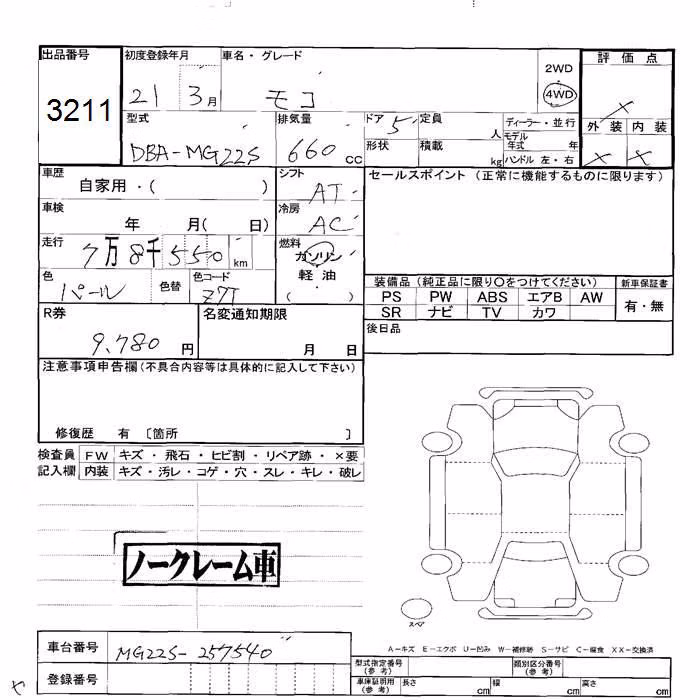 出品番号 初度登録年月 車名・グレード 評価点
3211 21 3月 モコ 2WD
4WD ×
型式 排気量 ドア 5 定員 人 ディーラー・並行 外装 内装
DBA-MG22S 660 cc 形状 積載 kg モデル年式 年 × ×
ハンドル 左・右
車歴 シフト セールスポイント (正常に機能するものに限ります)
自家用・( ) AT
車検 冷房
年 月( 日) AC
走行 7万8千550km 燃料 ガソリン
軽油
( )
色 パール 色替 色コード Z7T
装備品 (純正品に限り○をつけてください) 新車保証書
PS PW ABS エアB AW 有・無
SR ナビ TV カワ
R券 名変通知期限
9,780 円 月 日 後日品
注意事項申告欄(不具合内容等は具体的に記入して下さい)
修復歴 有 〔箇所 〕
検査員 FW キズ・飛石・ヒビ割・リペア跡・×要
記入欄 内装 キズ・汚レ・コゲ・穴・スレ・キレ・破レ
ノークレーム車
スペア
A-キズ E-エクボ U-凹み W-補修跡 S-サビ C-腐食 XX-交換済
車台番号 MG22S-257540
型式指定番号(参考) 類別区分番号(参考)
登録番号 車庫証明用(参考) 長さ cm 幅 cm 高さ cm
や